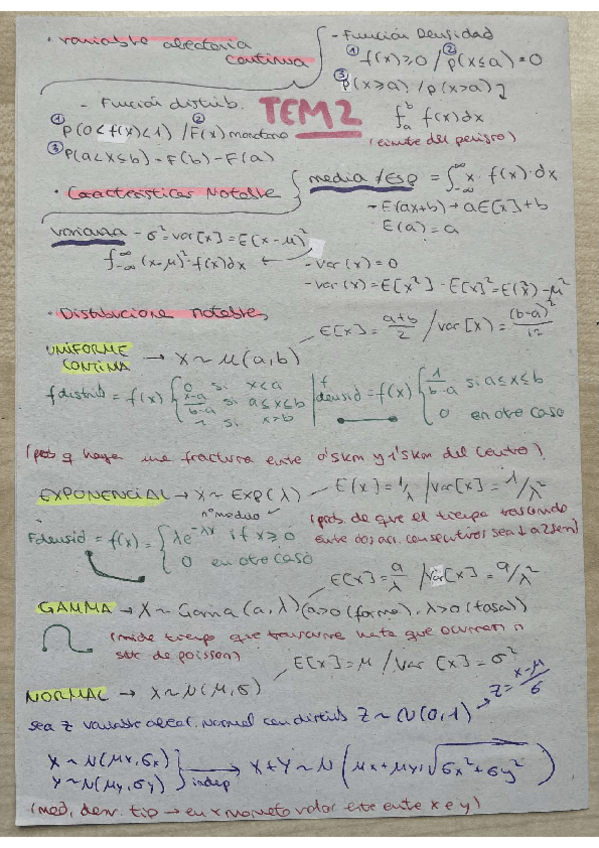 · variable aleatoria continua
- Función Densidad
① f(x)≥0 / ② p(x≤a)=0
③ p(x≥a) / p(x>a)
∫_a^b f(x)dx
TEM 2
- Función distrib.
① P(0<f(x)<1) / ② F(x) monótona
③ P(a<x≤b) - F(b) - F(a)
· Características Notable
media / Esp = ∫_{-∞}^{∞} x · f(x) · dx
- E(ax+b) → aE[x]+b
E(a) = a
varianza - σ² = var[x] = E(x-μ)²
∫_{-∞}^{∞} (x-μ)² · f(x)dx
- var(x) = 0
- var(x) = E[x²] - E[x]² = E(x²) - μ²
· Distribucione notables
E[x] = a+b/2 / var[x] = (b-a)²/12
UNIFORME CONTINUA → X ~ U(a,b)
f distrib = f(x) { 0 si x<a
x-a/b-a si a≤x≤b
1 si x>b
f densid = f(x) { 1/b-a si a≤x≤b
0 en otro caso
(prob q haya una fractura entre 0'5km y 1'5km del centro)
EXPONENCIAL → X ~ EXP(λ) - E(x) = 1/λ / var[x] = 1/λ²
nº medio
(prob. de que el tiempo trascurrido
entre dos acc. consecutivos sea ↓ a 2 sem)
F densid = f(x) = { λe^{-λx} if x≥0
0 en otro caso
E[x] = a/λ / var[x] = a/λ²
GAMMA → X ~ Gama(a,λ) (a>0 (forma), λ>0 (tasa))
(mide tiempo que transcurre hasta que ocurren n
suc de poisson)
E[x] = μ / var[x] = σ²
NORMAL → X ~ N(μ,σ)
Z = x-μ/σ
sea z variable aleat. normal con distrib Z ~ N(0,1)
X ~ N(μx, σx)
Y ~ N(μy, σy)
} indep → X+Y ~ N(μx+μy, √σx²+σy²)
(med, desv. tip → en x momento valor este entre x e y)